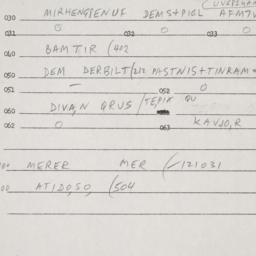 030 MIRHENGIENUF DEMS+PIOL AFMTV
031 0 032 0 033 0
040 BAMTIR (402
050 DEM DERBILT/212 MSTNIS+TINRAM
051 — 052 0
060 DIVAN QRUS/TEPIK QU
062 0 063 KAVJO,R
MERER MER (-121031
00 ATIDOSO, (504